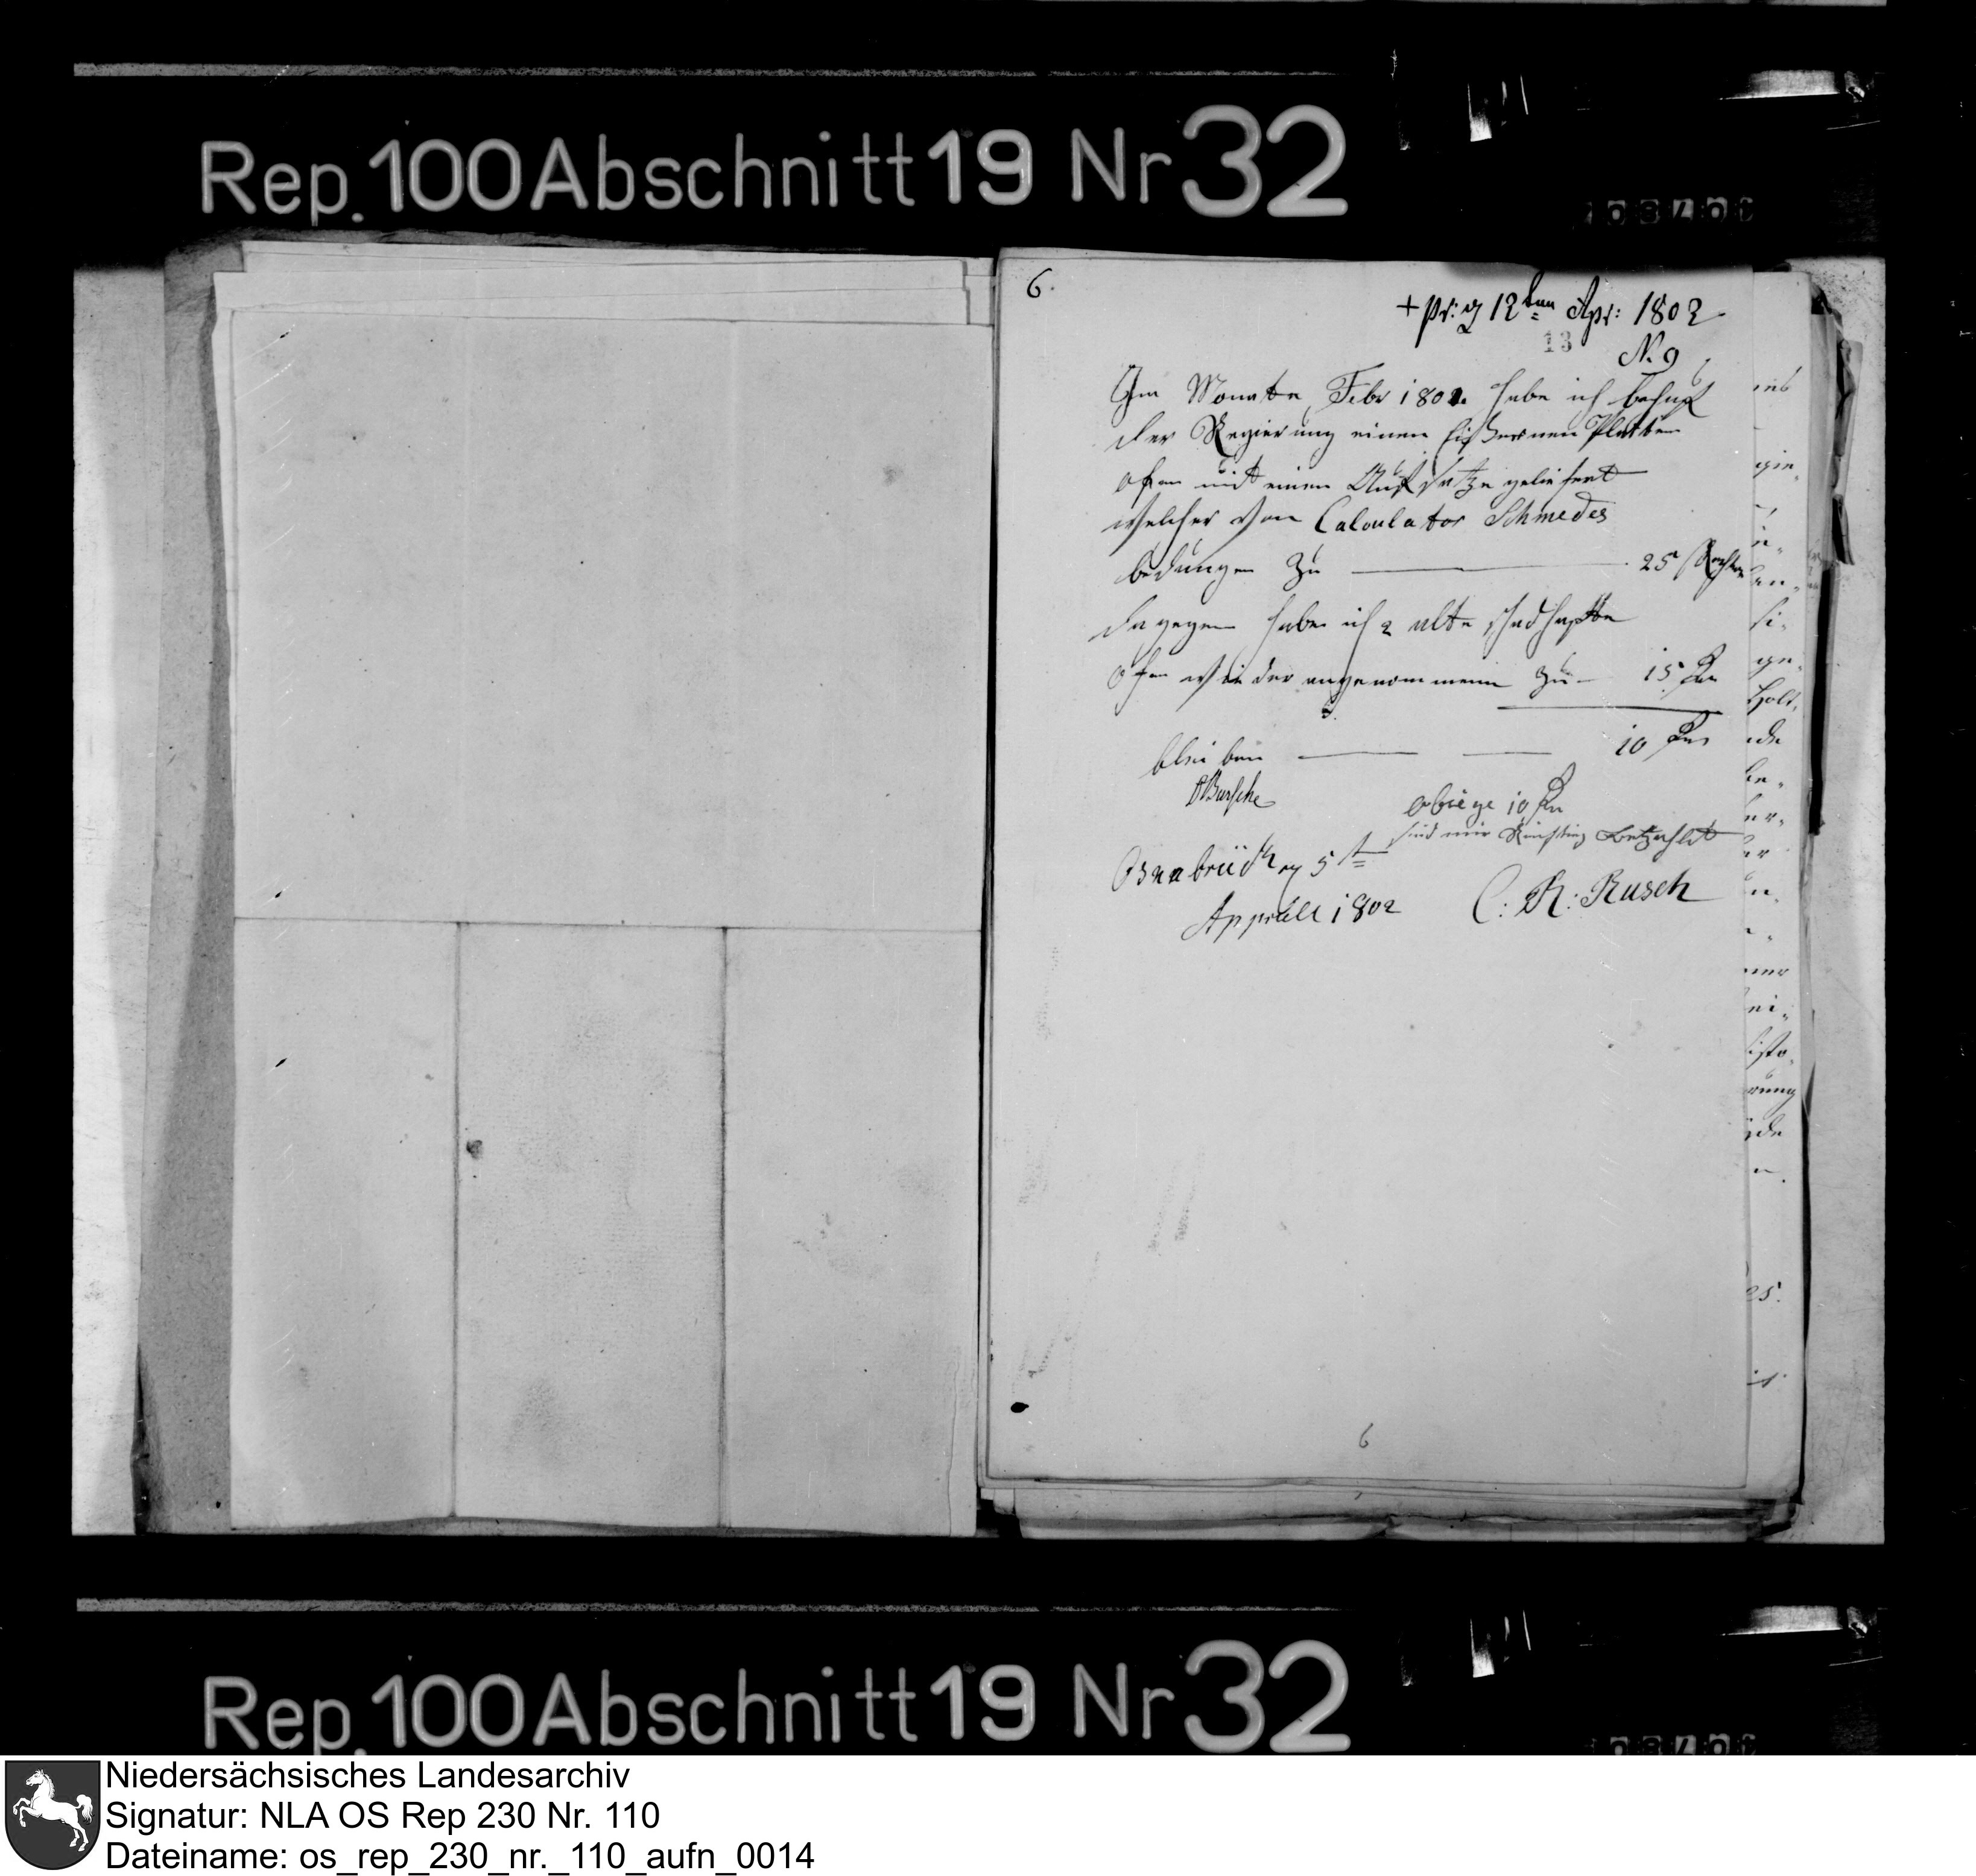 Rep. 100 Abschnitt 19 Nr 32
6.
+ pr: d 12ten Apr: 1802
13
N. 9
Im Monate Febr 1802 habe ich behuf
der Regierung einen Eißernen Platten
ofen mit einen Aufsatze geliefert
welcher von Calculator Schmedes
bedungen zu — 25
dagegen habe ich 2 alte schadhafte
ofen wieder angenommenn zu — 15
bleiben — — 10
Obiege 10
sind mir Richtig betzahlt
Osnabrück d 5t
Apprill 1802
C: R: Rusch
6
Rep. 100 Abschnitt 19 Nr 32
Niedersächsisches Landesarchiv
Signatur: NLA OS Rep 230 Nr. 110
Dateiname: os_rep_230_nr._110_aufn_0014